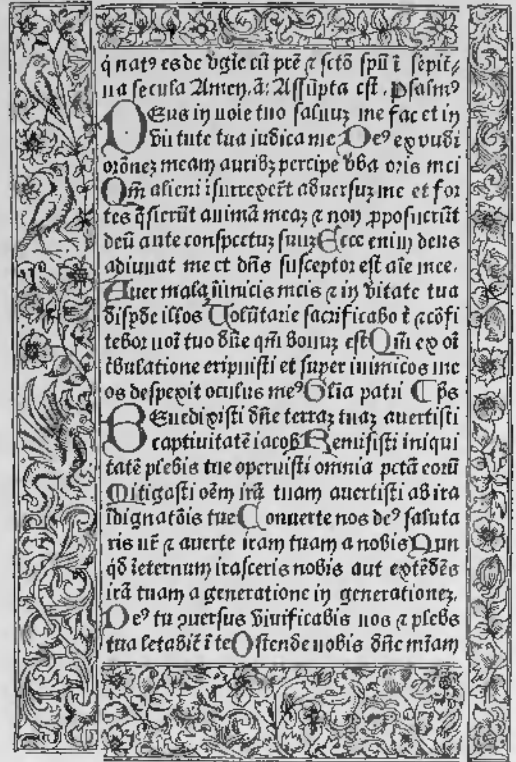 q̇ natꝰ es de v̇gīe cū ptr̄e ⁊ sctō spū ī sēpit⸗
na secula Amen. ā: Assūpta est. Psalmꝰ
DEus in noīe tuo saluuȝ me fac et in
vir̄tute tua iudica me Deꝰ exaudi
orōneȝ meam auribȝ percipe v̇ba oris mei
Qm̄ alieni īsurrexerūt aduersuȝ me et for
tes q̄sierūt animā meaȝ ⁊ non ꝓposuerūt
deū ante conspectuȝ suuȝ Ecce enim deus
adiuuat me et dn̄s susceptor est aīe mee.
Auer mala īimicis meis ⁊ in v̇itate tua
disp̄de illos Volūtarie sacrificabo t̄ ⁊ cōfi
tebor noī tuo dn̄e qm̄ bonuȝ est Qm̄ ex oī
tbulatione eripuisti et super inimicos me
os despexit oculus meꝰ Gl̄ia patri ¶ p̄s
BEnedixisti dn̄e terraȝ tuaȝ auertisti
captiuitatē iacob Remisisti iniqui
tatē plebis tue operuisti omnia pctā eorū
Mitigasti oēm irā tuam auertisti ab ira
īdignatōis tue Conuerte nos deꝰ saluta
ris nr̄ ⁊ auerte iram tuam a nobis Nun
qd̄ īeternum irasceris nobis aut extēdēs
irā tuam a generatione in generationeȝ.
Deꝰ tu ꝯuersus viuificabis nos ⁊ plebs
tua letabit̄ ī te Ostende nobis dn̄e mīam